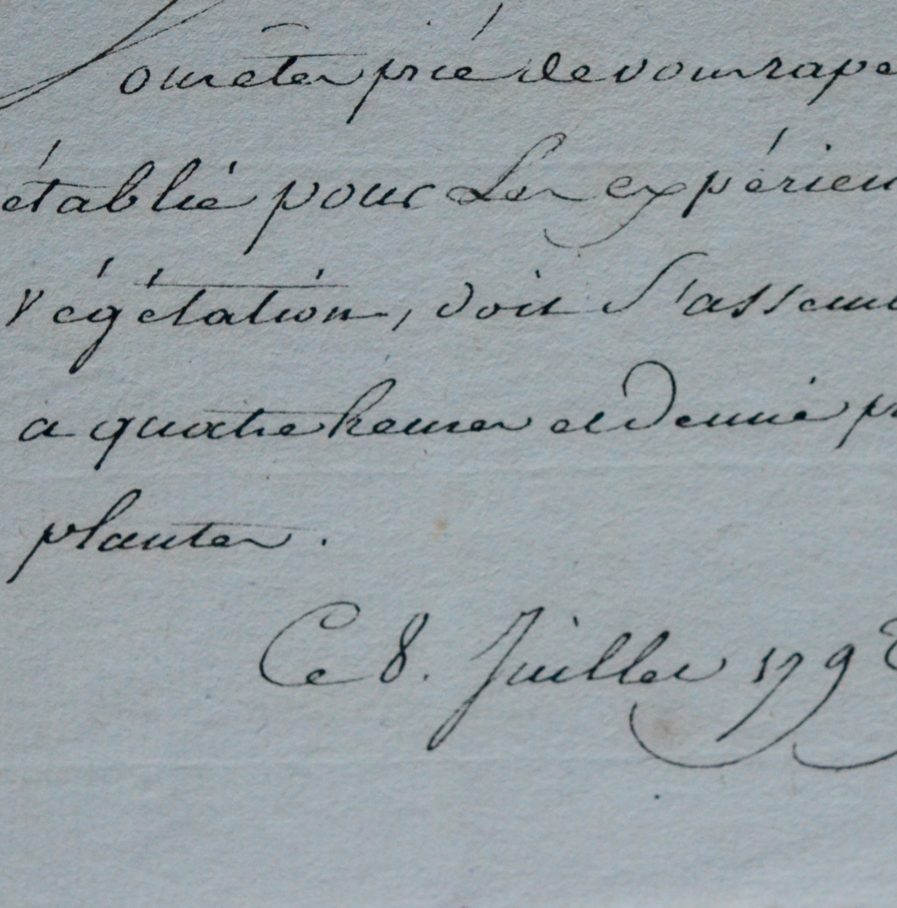 Vous êtes prié de vous rape
établie pour Les expérien
végétation, doit S'assem
a quatre heures et demie pr
plantes.
Ce 8. Juillet 179